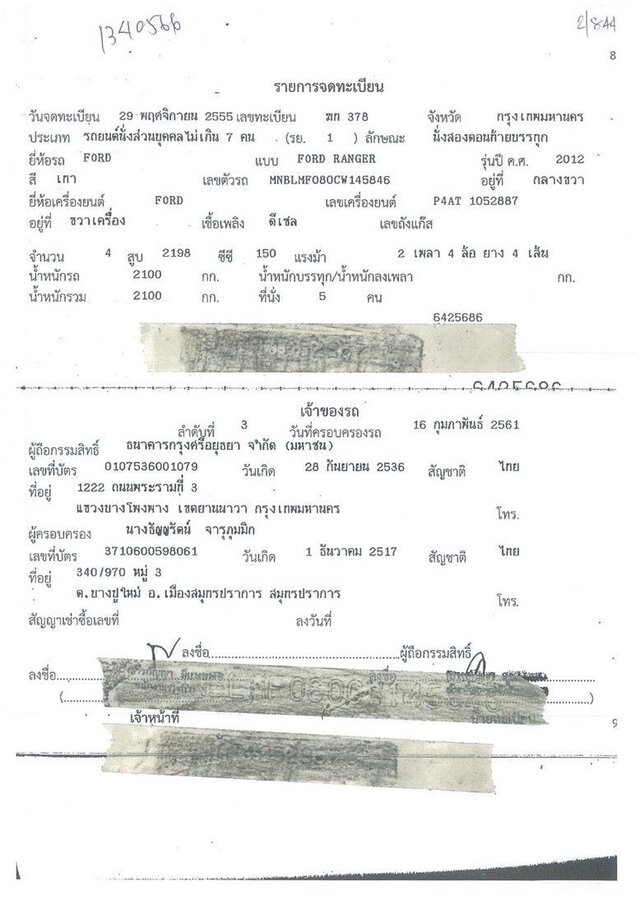 1340566
2/844
8
รายการจดทะเบียน
วันจดทะเบียน 29 พฤศจิกายน 2555 เลขทะเบียน ฆก 378 จังหวัด กรุงเทพมหานคร
ประเภท รถยนต์นั่งส่วนบุคคลไม่เกิน 7 คน (รย. 1 ) ลักษณะ นั่งสองตอนท้ายบรรทุก
ยี่ห้อรถ FORD แบบ FORD RANGER รุ่นปี ค.ศ. 2012
สี เทา เลขตัวรถ MNBLMF080CW145846 อยู่ที่ กลางขวา
ยี่ห้อเครื่องยนต์ FORD เลขเครื่องยนต์ P4AT 1052887
อยู่ที่ ขวาเครื่อง เชื้อเพลิง ดีเซล เลขถังแก๊ส
จำนวน 4 สูบ 2198 ซีซี 150 แรงม้า 2 เพลา 4 ล้อ ยาง 4 เส้น
น้ำหนักรถ 2100 กก. น้ำหนักบรรทุก/น้ำหนักลงเพลา กก.
น้ำหนักรวม 2100 กก. ที่นั่ง 5 คน
6425686
6425686
เจ้าของรถ
ลำดับที่ 3 วันที่ครอบครองรถ 16 กุมภาพันธ์ 2561
ผู้ถือกรรมสิทธิ์ ธนาคารกรุงศรีอยุธยา จำกัด (มหาชน)
เลขที่บัตร 0107536001079 วันเกิด 28 กันยายน 2536 สัญชาติ ไทย
ที่อยู่ 1222 ถนนพระรามที่ 3
แขวงบางโพงพาง เขตยานนาวา กรุงเทพมหานคร โทร.
ผู้ครอบครอง นางธัญรัตน์ จารุภุมมิก
เลขที่บัตร 3710600598061 วันเกิด 1 ธันวาคม 2517 สัญชาติ ไทย
ที่อยู่ 340/970 หมู่ 3
ต.บางปูใหม่ อ.เมืองสมุทรปราการ สมุทรปราการ โทร.
สัญญาเช่าซื้อเลขที่ ลงวันที่
ลงชื่อ ผู้ถือกรรมสิทธิ์
ลงชื่อ ลงชื่อ
เจ้าหน้าที่ นายทะเบียน
9